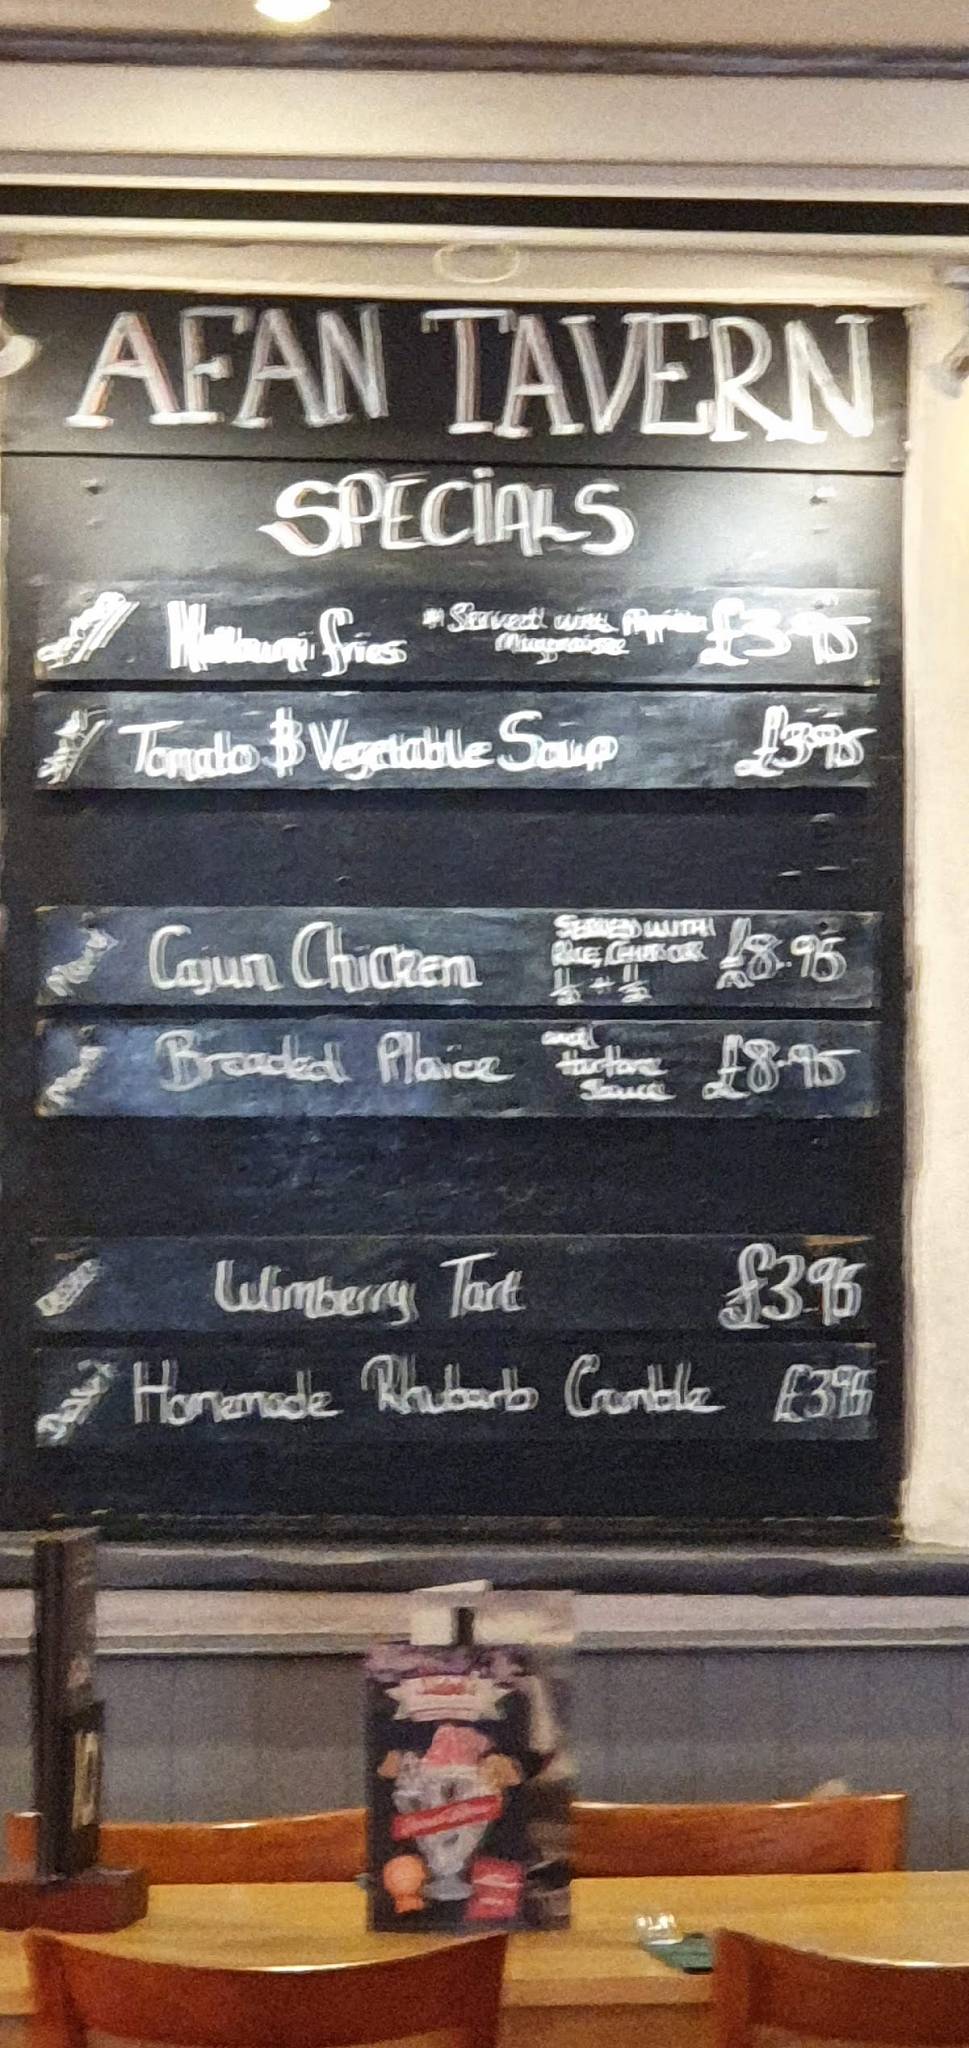 AFAN TAVERN
SPECIALS
Halloumi fries * Served with Paprika £3.95
Mayonaise
Tomato & Vegetable Soup £3.95
Cajun Chicken SERVED WITH £8.95
RICE, CHIPS OR
½ + ½
Breaded Plaice and £8.95
tartare
Sauce
Wimberry Tart £3.95
Homemade Rhubarb Crumble £3.95